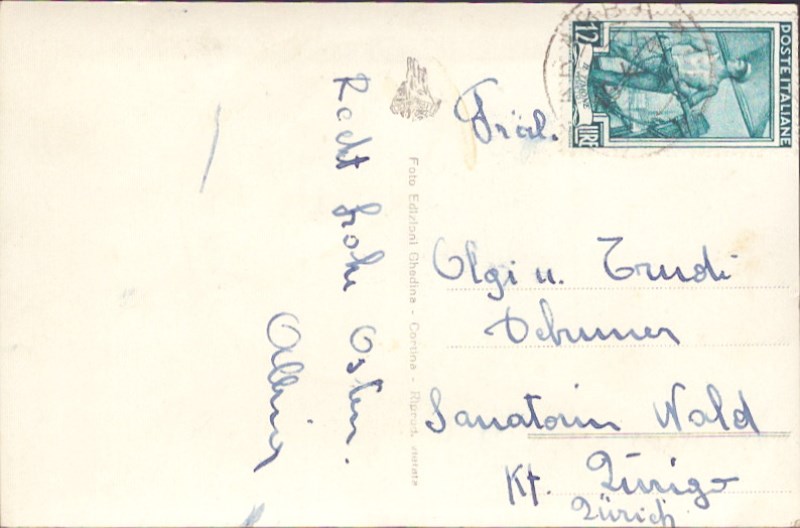 Recht frohe Ostern.
Albina
Foto Edizioni Ghedina - Cortina - Riprod. vietata
Fräul.
Olgi u. Trudi
Debrunner
Sanatorium Wald
Kt. Zürigo
Zürich
POSTE ITALIANE
12
LIRE